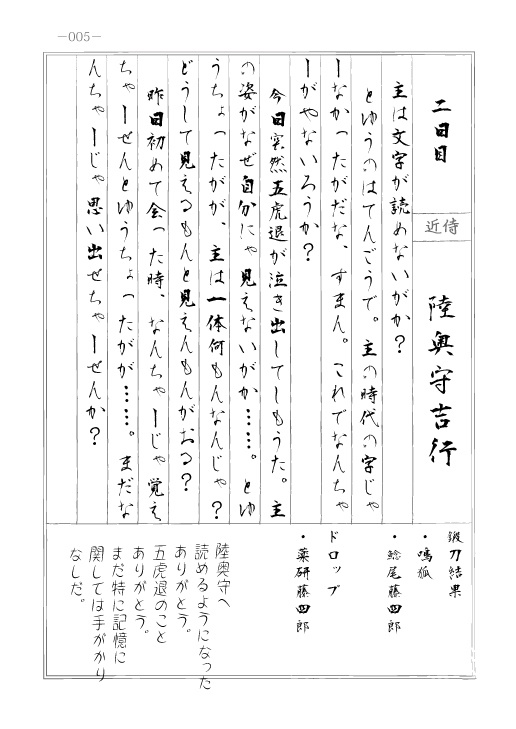 ―005―
二日目
近侍
陸奥守吉行
主は文字が読めないがか？
とゆうのはてんごうで。主の時代の字じゃ
ーなかったがだな、すまん。これでなんちゃ
ーがやないろうか？
今日突然五虎退が泣き出してしもうた。主
の姿がなぜ自分にゃ見えないがか……。とゆ
うちょったがが、主は一体何もんなんじゃ？
どうして見えるもんと見えんもんがおる？
昨日初めて会った時、なんちゃーじゃ覚え
ちゃーせんとゆうちょったがが……。まだな
んちゃーじゃ思い出せちゃーせんか？
鍛刀結果
・鳴狐
・鯰尾藤四郎
ドロップ
・薬研藤四郎
陸奥守へ
読めるようになった
ありがとう。
五虎退のこと
ありがとう。
まだ特に記憶に
関しては手がかり
なしだ。